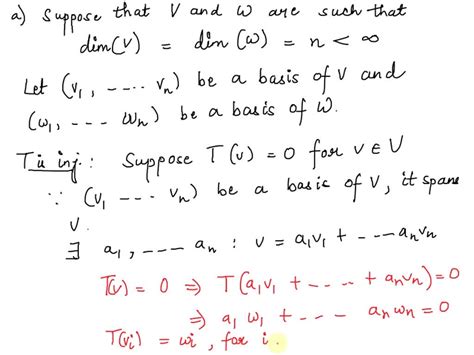 a) Suppose that V and W are such that
dim(V) = dim(W) = n < ∞
Let (v₁, ---- vₙ) be a basis of V and
(w₁, --- wₙ) be a basis of W.
T is inj: Suppose T(v) = 0 for v ∈ V
∵ (v₁ --- vₙ) be a basis of V, it spans
V.
∃ a₁, ---- aₙ : v = a₁v₁ + --- aₙvₙ
T(v) = 0 ⇒ T(a₁v₁ + ---- + aₙvₙ) = 0
⇒ a₁ w₁ + --- aₙ wₙ = 0
T(vᵢ) = wᵢ, for i.